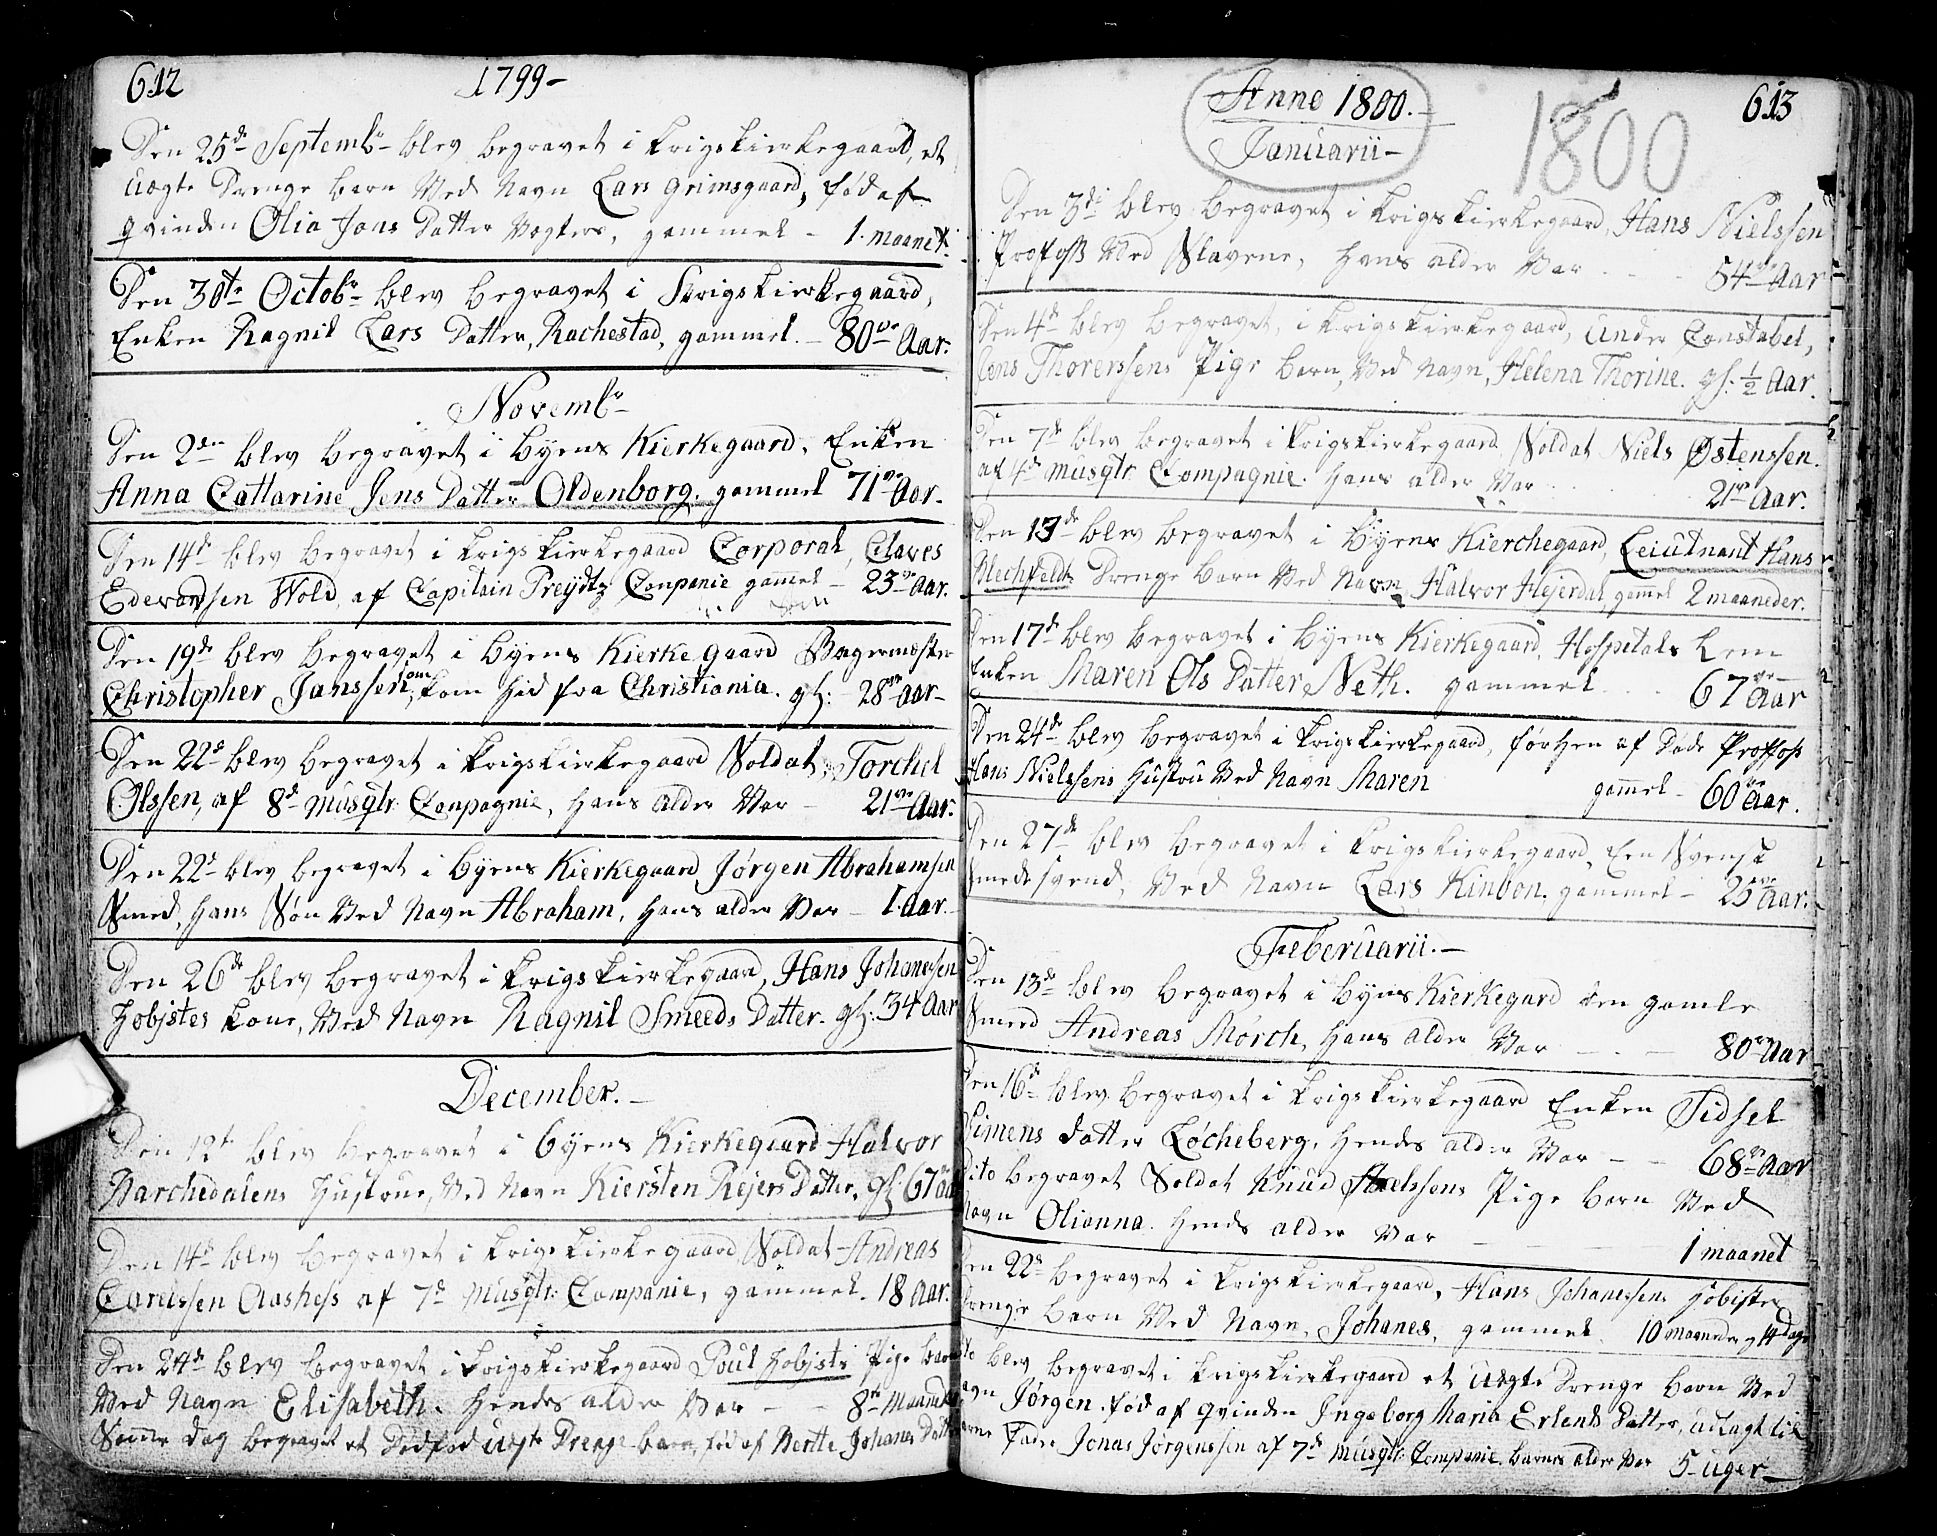 612 1799-
Den 25de Septembr blev begravet i Krigskierkegaard, et
uægte Drenge Barn Ved Navn Lars Grimsgaard, fød af
qvinden Olia Jons Datter Vogters, gammel - 1. maanet.
Den 30te Octobr blev begravet i Krigskierkegaard,
Enken Ragnil Lars Datter, Rachestad, gammel. - 80ve Aar.
Novembr
Den 2den blev begravet i byens Kierkegaard, Enken
Anna Cattarine Jens Datter Oldenborg. gammel 71ve Aar.
Den 14de blev begravet i Krigskierkegaard Corporal, Claves
Edevardsen Wold, af Capitain Preydtz Companie gammel - 23ve Aar.
Den 19de blev begravet i byens Kierkegaard Bagermester
Christopher Janssen, som kom hid fra Christiania. gl: 28ve Aar-
Den 22de blev begravet i Krigskierkegaard Soldat, Torchel
Olssen, af 8de musqtr: Conpagnie, hans alder Var - 21ve Aar.
Den 22de blev begravet i byens Kierkegaard, Jørgen Abrahamsen
Smed, hans Søn Ved Navn Abraham, hans alder Var - 1. Aar.
Den 26de blev begravet i Krigskierkegaard, Hans Johanessen
Hobistes Kone, Ved Navn Ragnil Smeeds Datter. gl: 34 Aar
December. -
Den 12te blev begravet i byens Kierkegaard Halvor
Barchedalens Hustrue, Ved Navn Kiersten Rejers Datter, gl: 67ve Aar
Den 14de blev begravet i Krigskierkegaard, Soldat Andreas
Carelssen Aashess af 7de musqtr: Companie, gammel. 18 Aar.
Den 24de blev begravet i Krigskierkegaard Poul Hobists Pige Barn
Ved Navn Elisabeth. Hendes alder Var - - 8te Maaneder
Samme dag begravet et Dødfød uægte Drenge barn, fød af Berthe Johanes Datter
Anno 1800. 1800 613
Januarii -
Den 3die blev begravet i Krigskierkegaard, Hans Nielssen
Profoss Ved Slavene, hans alder Var - - - 54ve Aar
Den 4de blev begravet i Krigskierkegaard, Under Constabel,
Jens Thorerssens Pige Barn, Ved Navn, Helena Thorine. gl: 1/2 Aar.
Den 7de blev begravet i Krigskierkegaard, Soldat Niels Østenssen.
af 4de musqtr Compagnie. hans alder Var 21ve Aar.
Den 13de blev begravet i byens Kierchegaard, Leiutnant Hans
Blechfeldts Drenge Barn Ved Navn Halvor Hejerdal, gammel 2 maaneder.
Den 17de blev begravet i byens Kierkegaard, Hospitals Lem
Enken Maren Ols Datter Neth. gammel - 67ve Aar
Den 24de blev begravet i Krigskierkegaard, forhen af Døde Proffoss
Hans Nielssens Hustru Ved Navn Maren gammel - 60ve Aar.
Den 27de blev begravet i Krigskierkegaard, Een Svensk
Smedesvend, Ved Navn Lars Kinbon. gammel - 25ve Aar.
Feberuarii. -
Den 13de blev begravet i byens Kierkegard den gamle
Smed Andreas Mørch, hans alder Var - . - 80ve Aar
Den 16de blev begravet i Krigskierkegaard Enken Sidsel
Simens Datter Løcheberg, hendes alder Var - - 68ve Aar
Dito begravet Soldat Knud Axelssens Pige Barn Ved
Navn Olianna. hendes alder Var - - - 1 maanet
Den 22de begravet i Krigskierkegaard, Hans Johanessens Hobistes
Drenge Barn Ved Navn, Johanes, gammel. 10 maaneder og 14 dage
Dito blev begravet i Krigskierkegaard et uægte Drenge Barn Ved
Navn Jørgen. fød af qvinden Ingeborg Maria Erlends Datter, udlagt til
Barne Fader Jonas Jørgenssen af 7de musqtr: Companie. Barnes alder Var 5 uger -